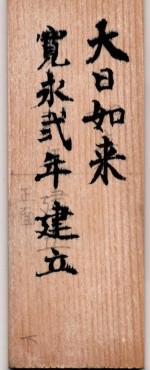 大日如来
寛永弐年建立